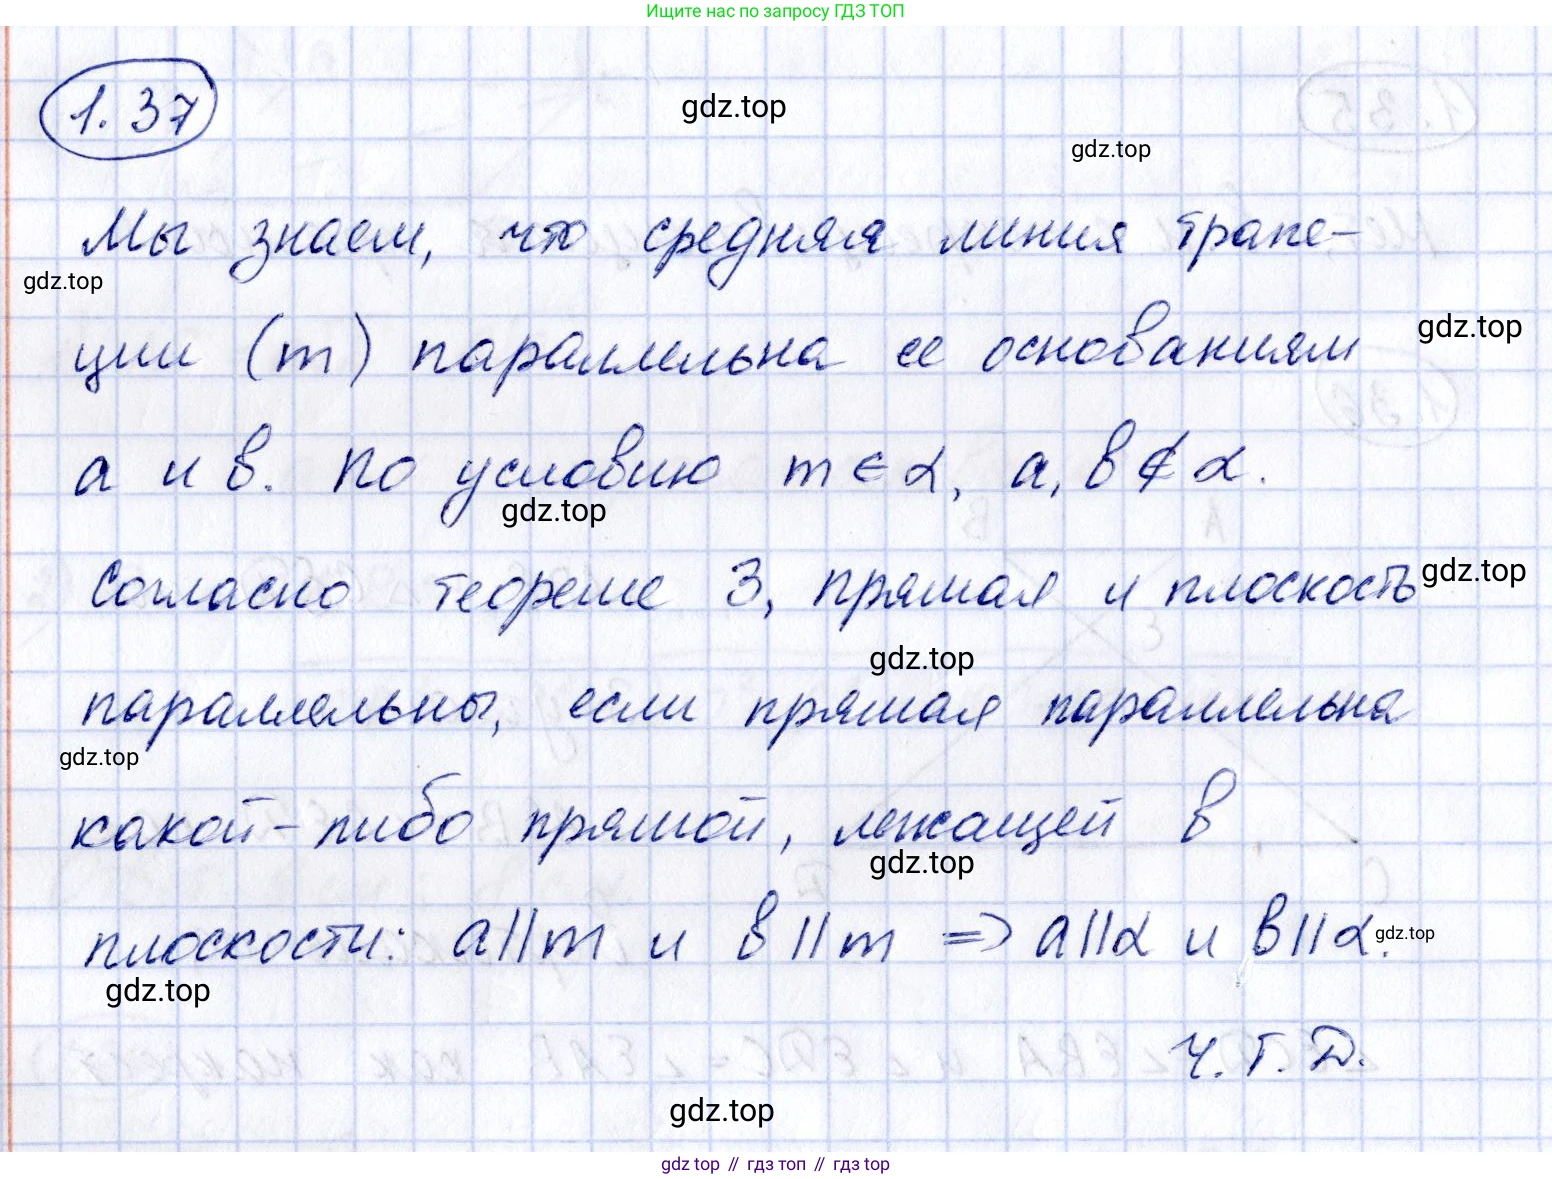 Ищите нас по запросу ГДЗ ТОП
1.37
gdz.top
gdz.top
Мы знаем, что средняя линия трапе-
gdz.top
ции (m) параллельна ее основаниям
gdz.top
a и b. По условию m ∈ α, a, b ∉ α.
gdz.top
Согласно теореме 3, прямая и плоскость
gdz.top
gdz.top
параллельны, если прямая параллельна
gdz.top
какой-либо прямой, лежащей в
gdz.top
плоскости: a||m и b||m => a||α и b||α.
gdz.top
gdz.top
Ч.Т.Д.
gdz.top
gdz top // гдз топ // гдз top